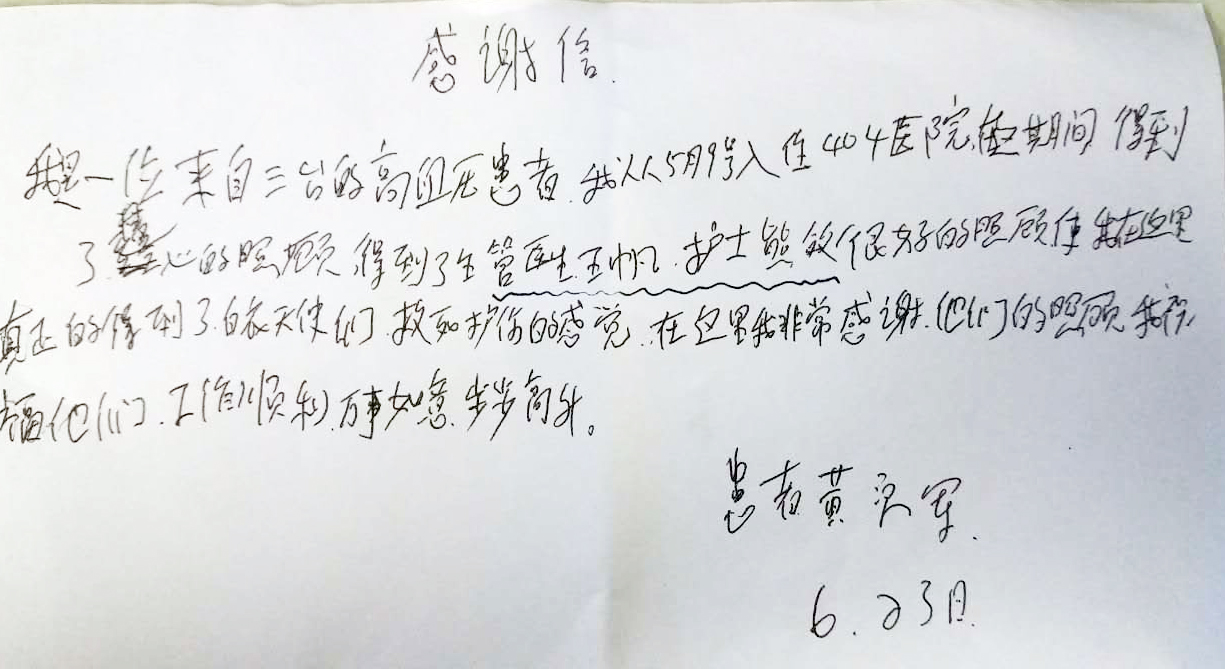 感谢信.
我是一位来自三台的高血压患者.我从5月9号入住404医院,在其期间得到
了精心的照顾,得到了主管医生王帆.护士熊敏很好的照顾使我在这里
真正的得到了白衣天使们救死护伤的感觉.在这里我非常感谢.他们的照顾我祝
福他们.工作顺利.万事如意.步步高升。
患者黄军.
6.23日.